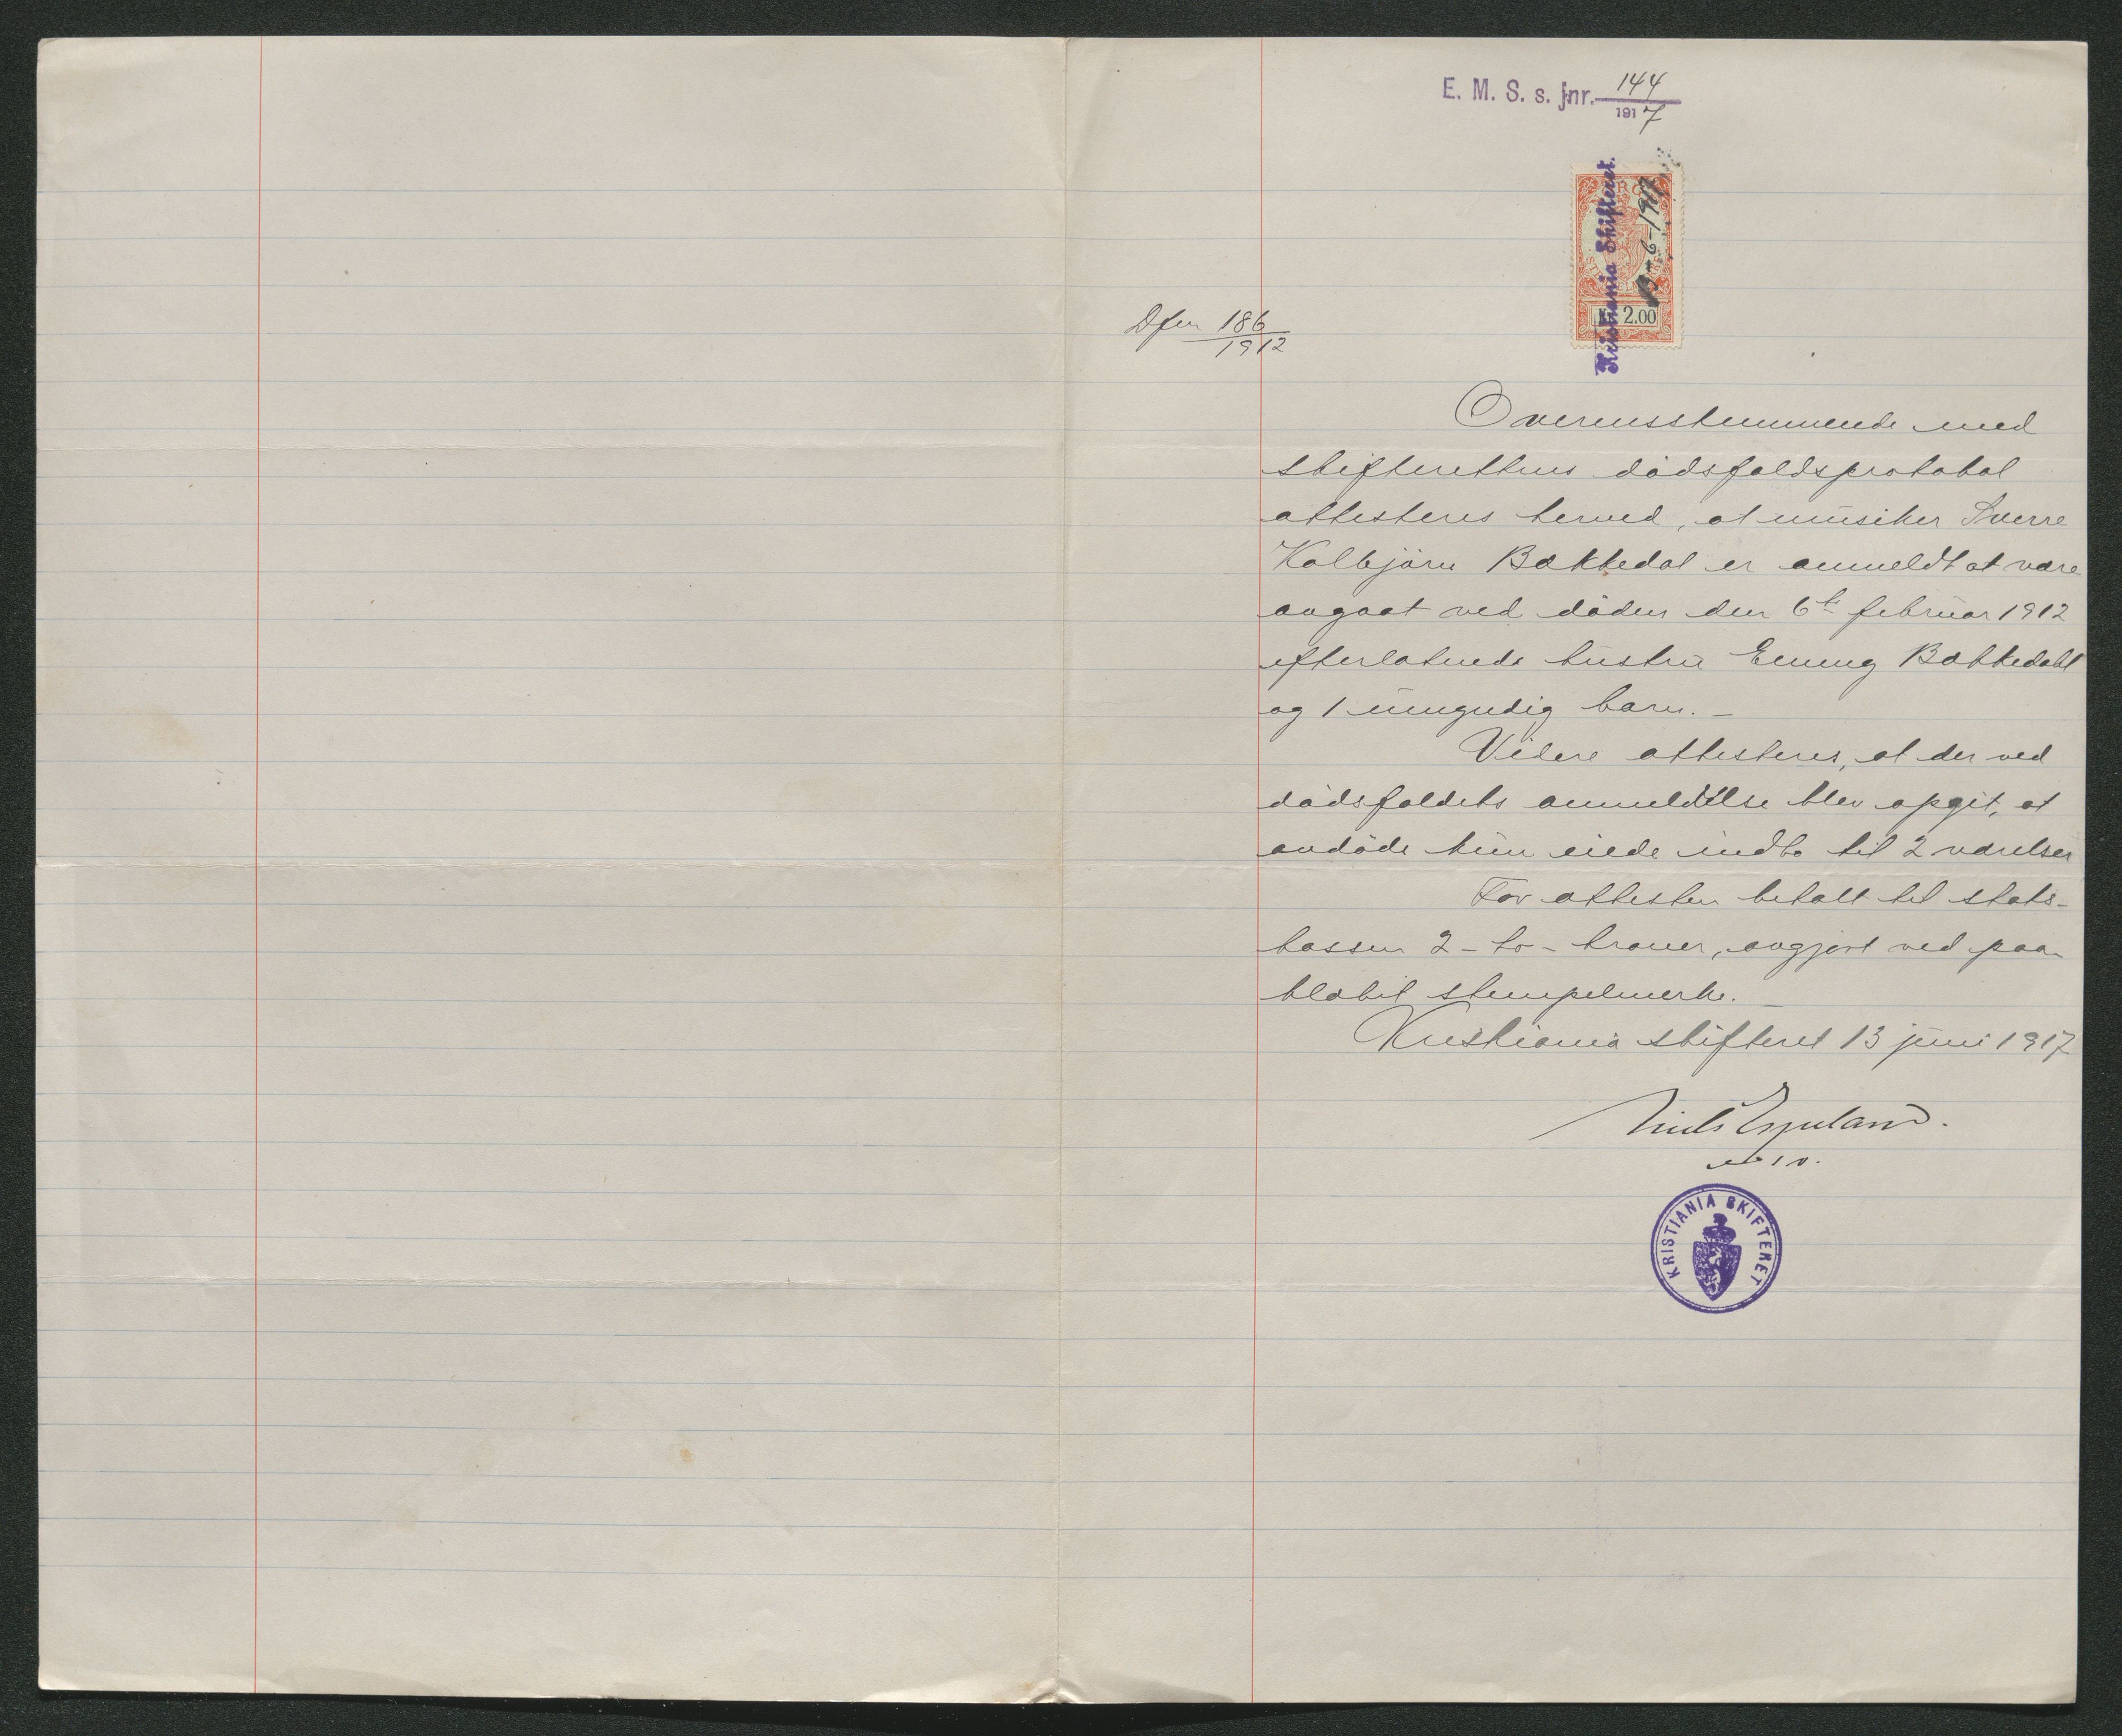 E. M. S. s. jnr. 144
1917
NORGE
Kristiania Skifteret.
13-6-1917
Kr. 2.00
Dfm 186
1912
Overensstemmende med
skifterettens dödsfaldsprotokol
attesteres herved, at musiker Sverre
Kolbjörn Bækkedal er anmeldt at være
avgaat ved döden den 6te februar 1912
efterlatende hustru Emmy Bækkedahl
og 1 umyndig barn. –
Videre attesteres, at der ved
dödsfaldets anmeldelse blev opgit, at
avdöde kun eiede indbo til 2 værelser
For attesten betalt til stats-
kassen 2 - to - kroner, avgjort ved paa-
klæbet stempelmerke. –
Kristiania skifteret 13 juni 1917
Niels
KRISTIANIA SKIFTERET